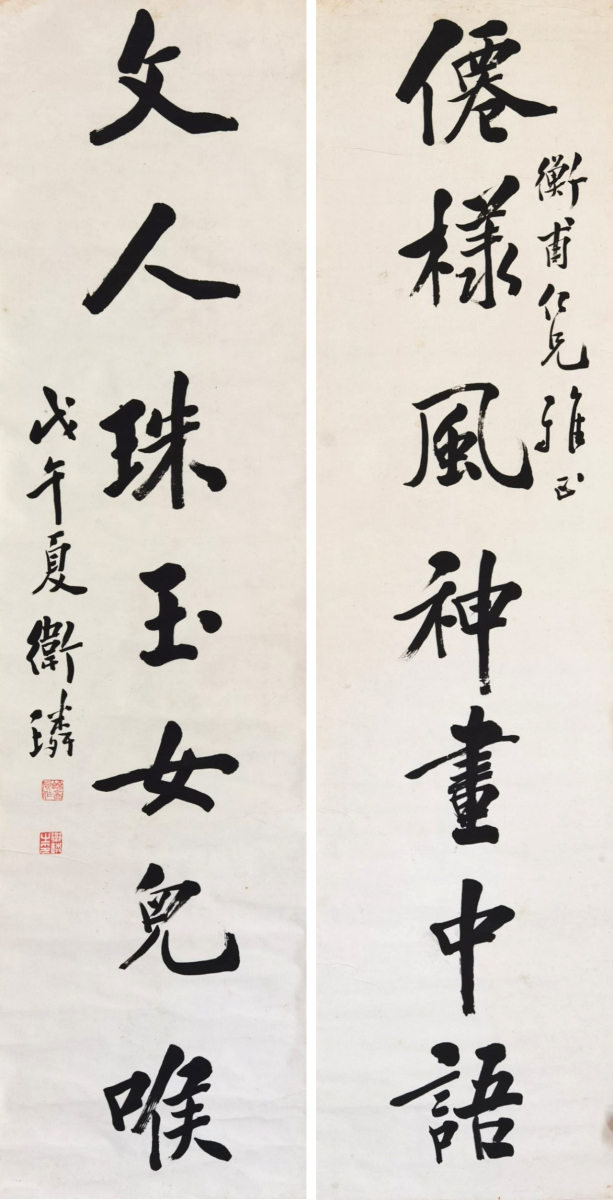 僊樣風神畫中語
衡甫仁兄雅正
文人珠玉女兒喉
戊午夏衛璘